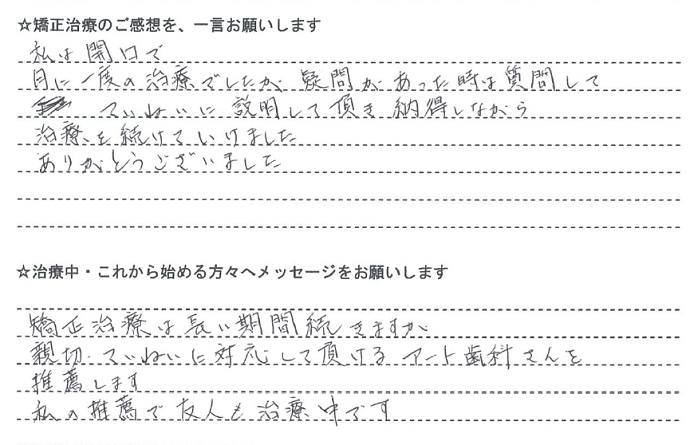 ☆矯正治療のご感想を、一言お願いします
私は開口で
月に一度の治療でしたが、疑問があった時は質問して
ていねいに説明して頂き納得しながら
治療を続けていけました
ありがとうございました
☆治療中・これから始める方々へメッセージをお願いします
矯正治療は長い期間続きますが
親切、ていねいに対応して頂けるアート歯科さんを
推薦します
私の推薦で友人も治療中です